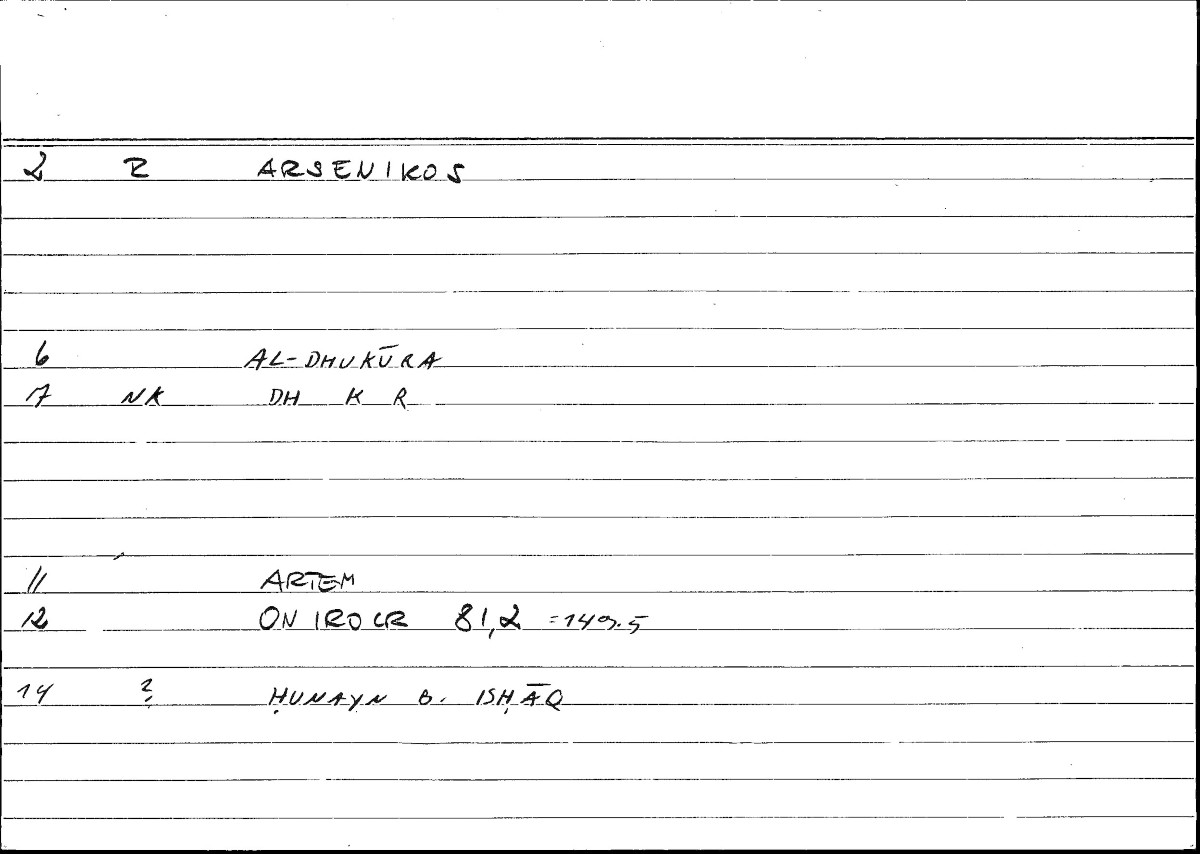 2 R ARSENIKOS
6 AL-DHUKŪRA
7 NK DH K R
11 ARTEM
12 ONIROCR 81,2 =149.5
14 ? ḤUNAYN B. ISḤĀQ